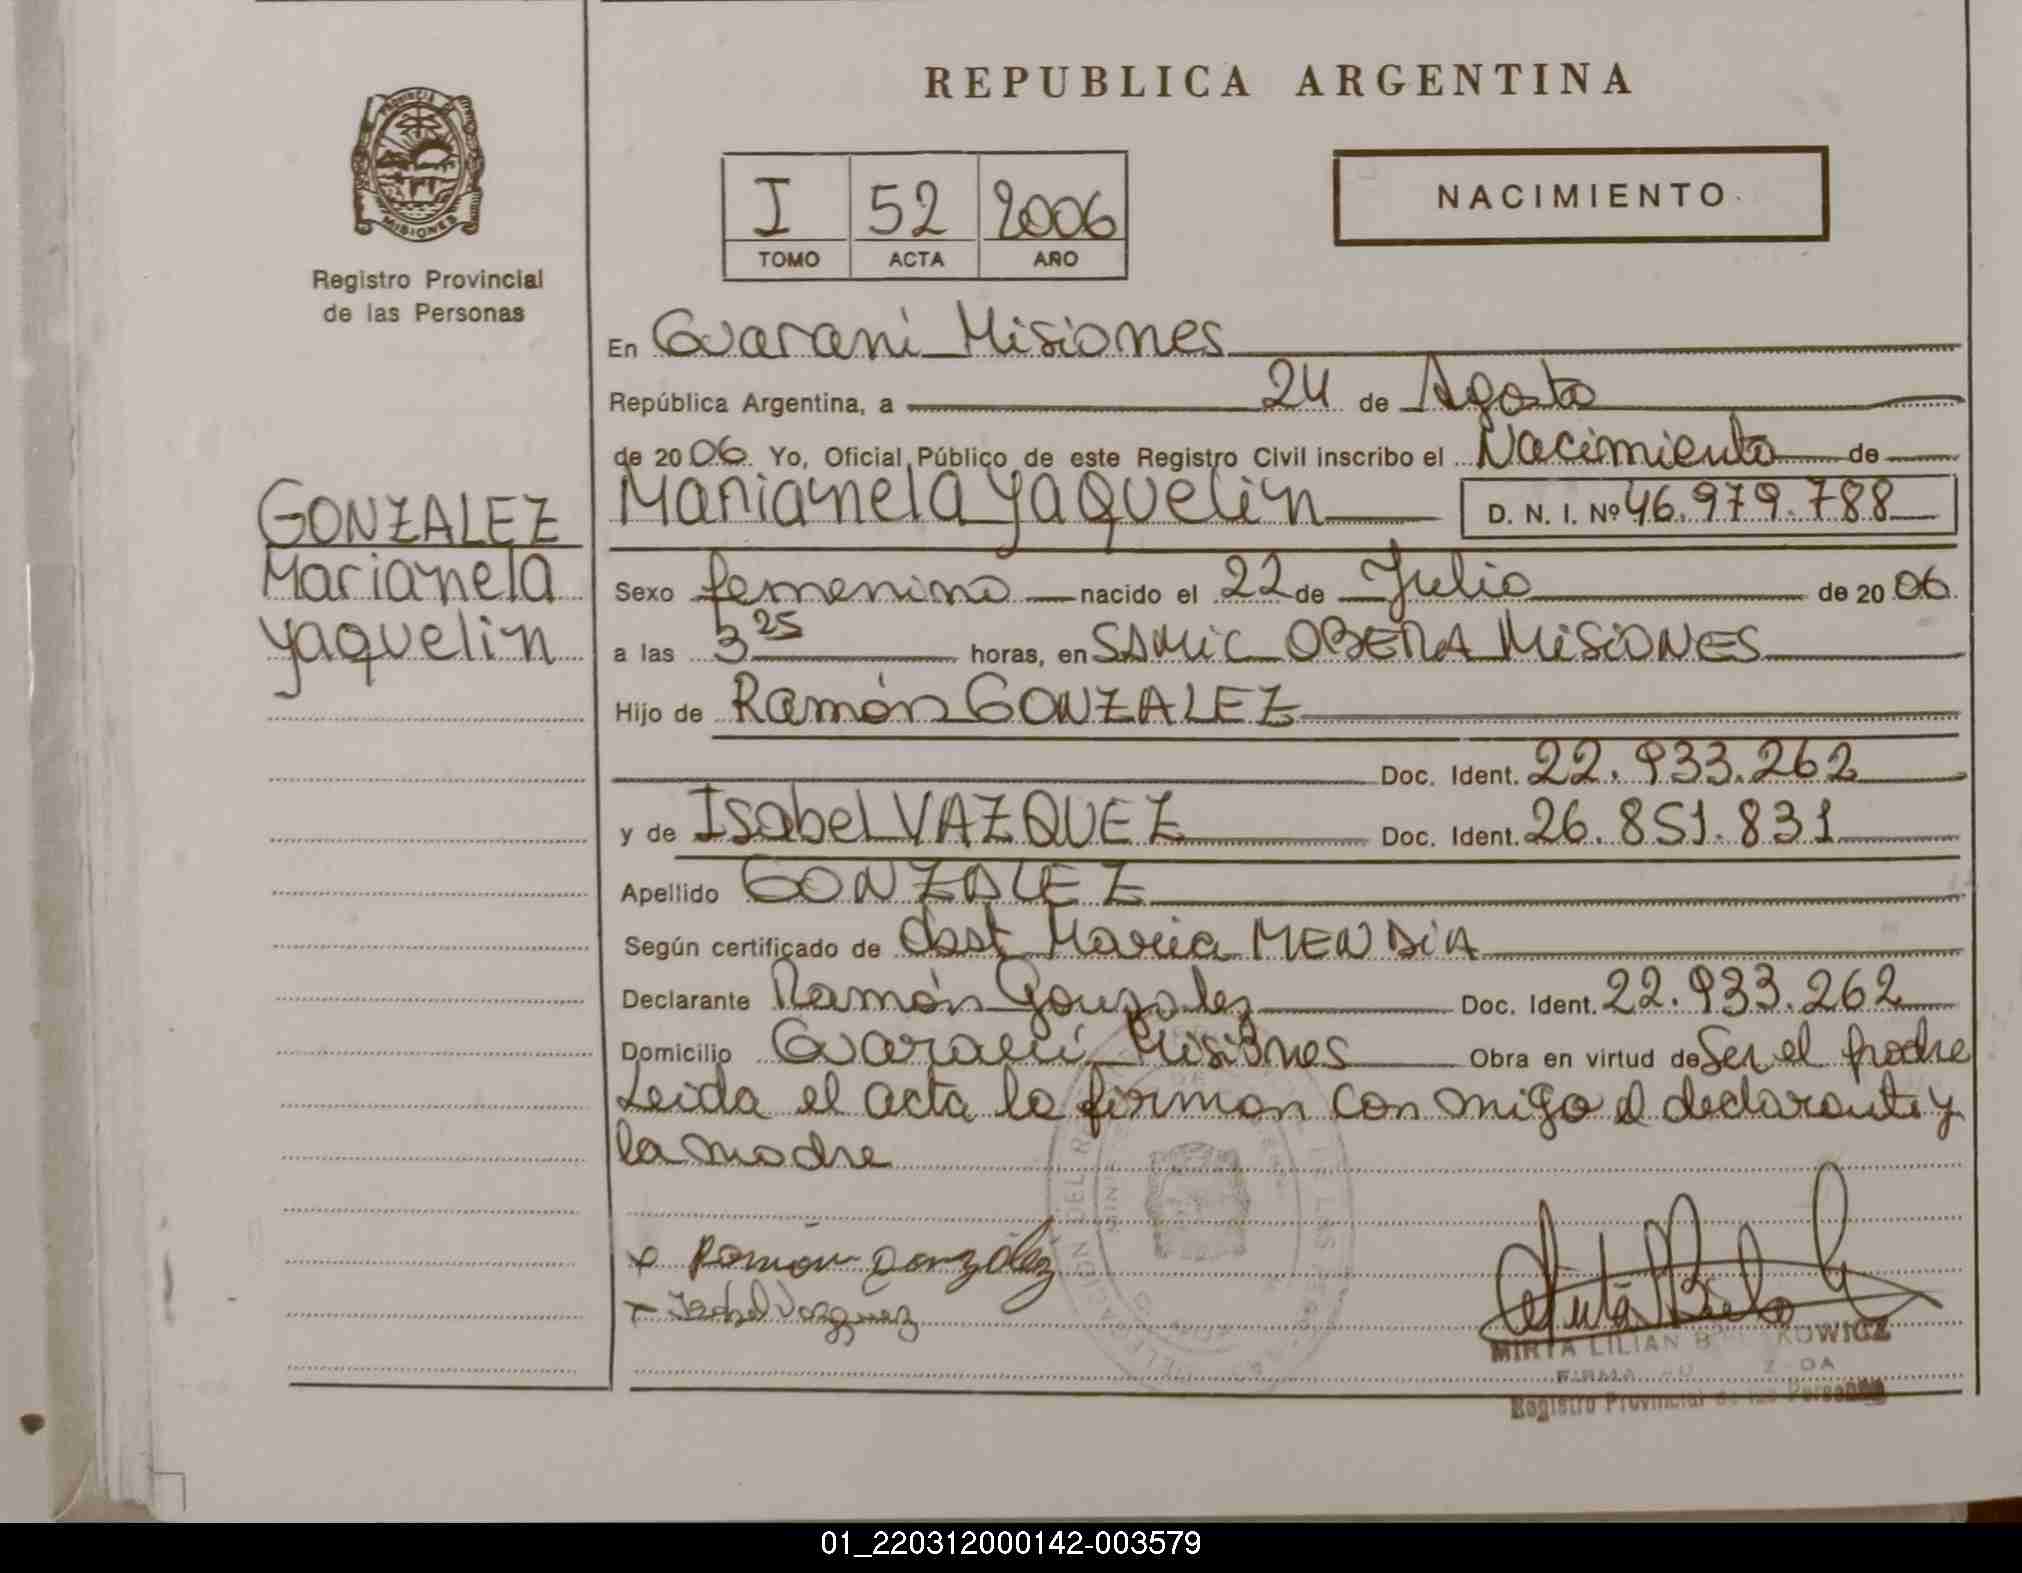 REPUBLICA ARGENTINA
PROVINCIA DE
MISIONES
Registro Provincial
de las Personas
I 52 2006
TOMO ACTA AÑO
NACIMIENTO
En Guarani Misiones
República Argentina, a 24 de Agosto
de 2006 Yo, Oficial Público de este Registro Civil inscribo el Nacimiento de
GONZALEZ
Marianela
Yaquelin
Marianela Yaquelin D. N. I. Nº 46.979.788
Sexo femenino nacido el 22 de Julio de 2006
a las 3 25 horas, en SAMiC OBERA MiSiONES
Hijo de Ramón GONZALEZ
Doc. Ident. 22.933.262
y de Isabel VAZQUEZ Doc. Ident. 26.851.831
Apellido GONZALEZ
Según certificado de Obst Maria MENDiA
Declarante Ramón Gonzalez Doc. Ident. 22.933.262
Domicilio Guarani Misiones Obra en virtud de Ser el padre
Leida el acta la firman con migo el declarante y
la madre
x Ramón González
x Isabel Vazquez
MIRTA LILIAN
Registro Provincial de las Personas
01_220312000142-003579